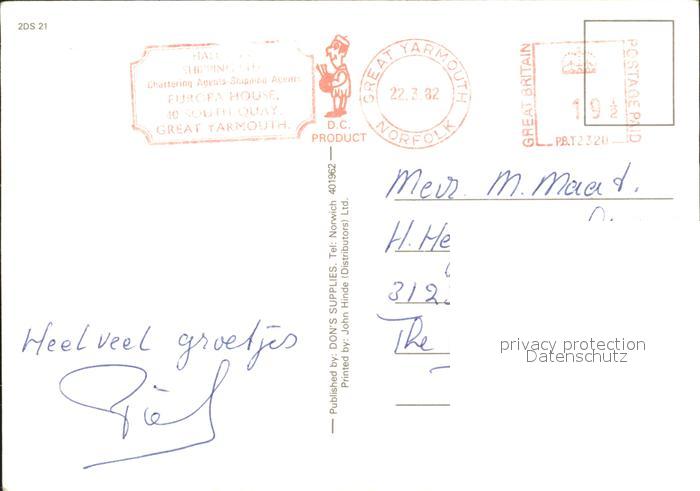 2DS 21
SHIPPING LTD.
Chartering Agents-Shipping Agents
EUROPA HOUSE,
40 SOUTH QUAY,
GREAT YARMOUTH.
D.C.
PRODUCT
GREAT YARMOUTH
22.3.82
NORFOLK
GREAT BRITAIN
19½
P.B.T2320
POSTAGE PAID
Published by: DON'S SUPPLIES. Tel: Norwich 401962
Printed by: John Hinde (Distributors) Ltd.
Mevr. M. Maat.
H. He
312
The
privacy protection
Datenschutz
Heel veel groetjes